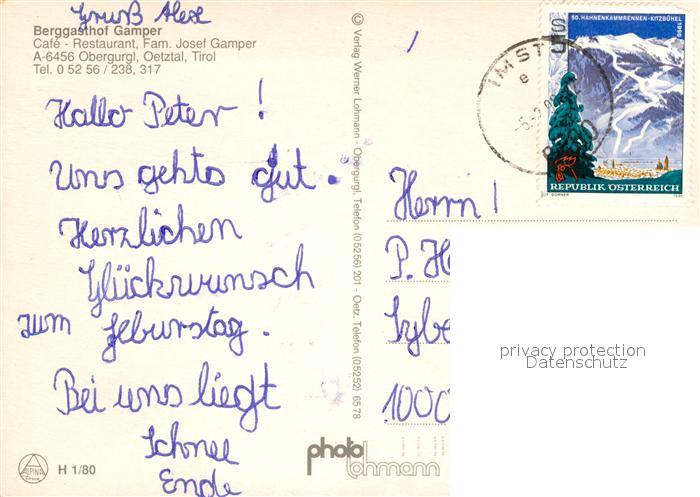 Gruß Alex
Berggasthof Gamper
Café - Restaurant, Fam. Josef Gamper
A-6456 Obergurgl, Oetztal, Tirol
Tel. 0 52 56 / 238, 317
Hallo Peter !
Uns gehts gut.
Herzlichen
Glückwunsch
zum Geburstag.
Bei uns liegt
Schnee
Ende
H 1/80
© Verlag Werner Lohmann - Obergurgl, Telefon (05256) 201 - Oetz, Telefon (05252) 65 78
photo
lohmann
50. HAHNENKAMMRENNEN-KITZBÜHEL
1990
IMST
REPUBLIK ÖSTERREICH
Herrn !
P. H
1000
privacy protection
Datenschutz